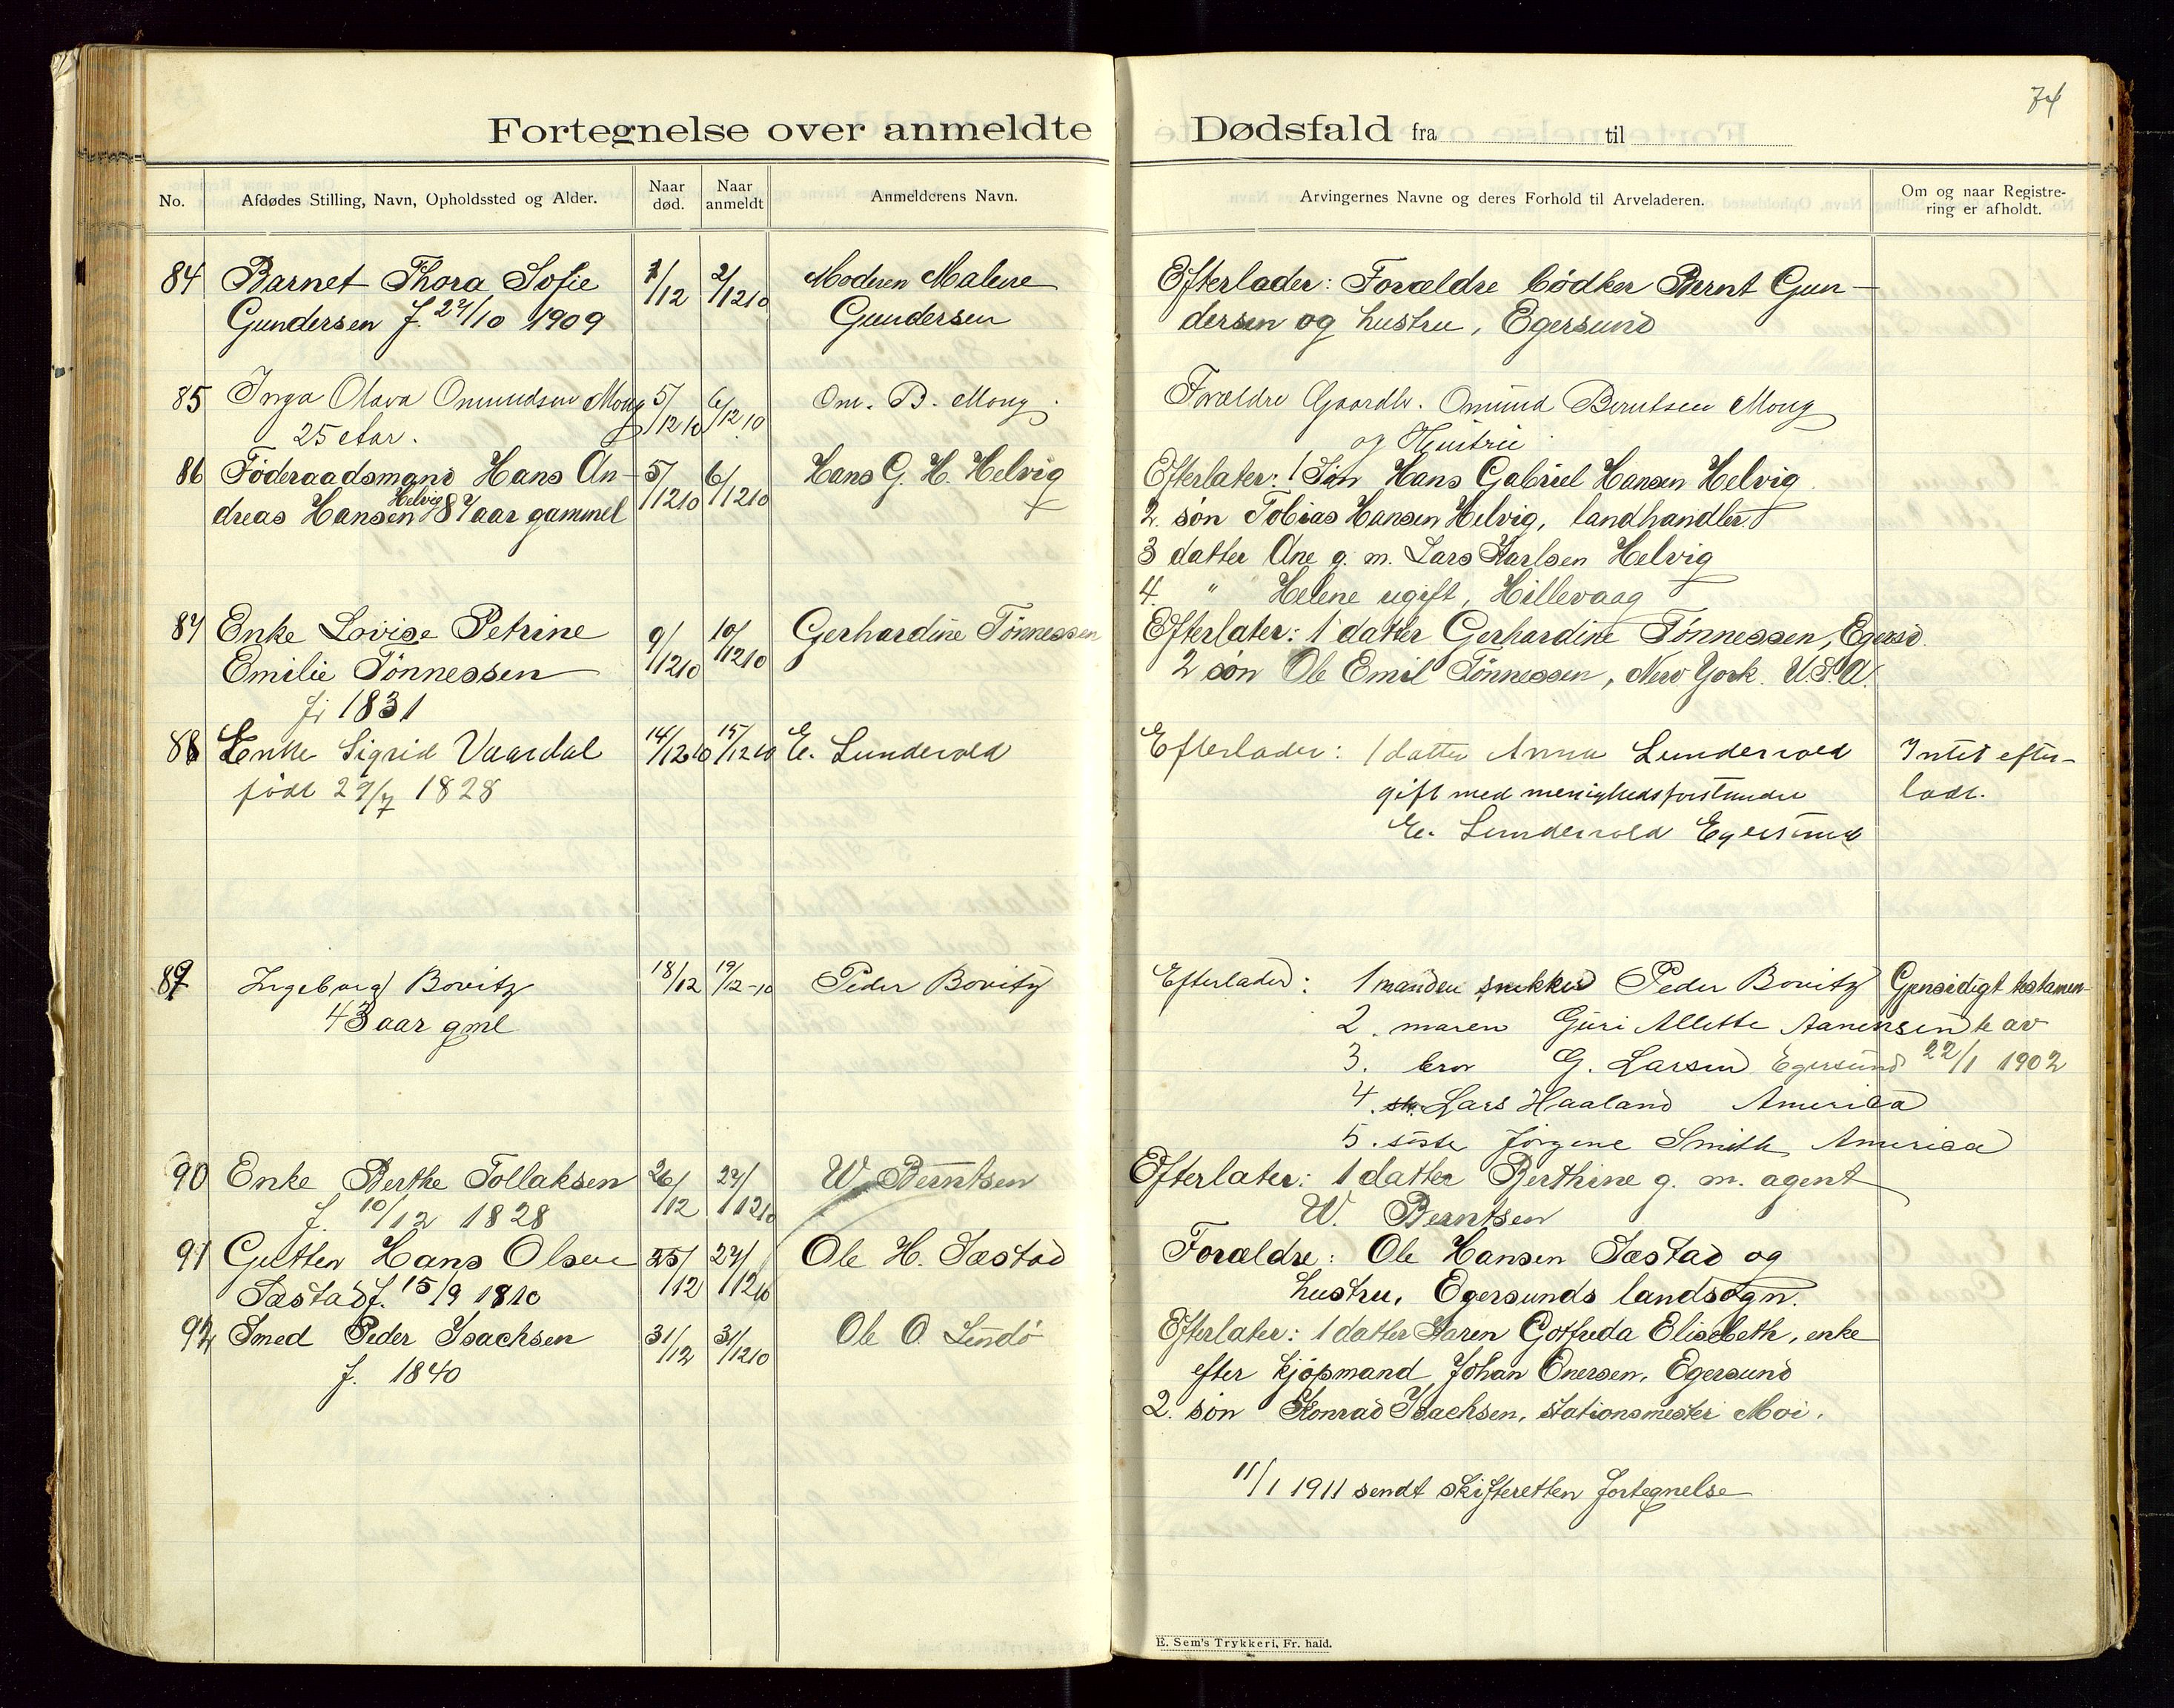 74
Fortegnelse over anmeldte Dødsfald fra til
No. Afdødes Stilling, Navn, Opholdssted og Alder. Naar død. Naar anmeldt Anmelderens Navn. Arvingernes Navne og deres Forhold til Arveladeren. Om og naar Registrering er afholdt.
84 Barnet Thora Sofie 1/12 2/12 10 Moderen Malene Efterlader: Forældre bødker Bernt Gun-
Gundersen f. 27/10 1909 Gundersen dersen og hustru, Egersund
85 Inga Olava Omundsen Mong 5/12 10 6/12 10 Om. B. Mong. Forældre Gaardbr. Omund Berntsen Mong
25 Aar. og Hustru
86 Föderaadsmand Hans An- 5/12 10 6/12 10 Hans G. H. Helvig Efterlater: 1 Sön Hans Gabriel Hansen Helvig
dreas Hansen Helvig 87 aar gammel 2. sön Tobias Hansen Helvig, landhandler
3 datter Ane g. m. Lars Karlsen Helvig
4. " Helene ugift, Hillevaag
87 Enke Lovise Petrine 9/12 10 10/12 10 Gerhardine Tönnessen Efterlater: 1 datter Gerhardine Tönnessen, Egersd.
Emilie Tönnessen 2 sön Ole Emil Tönnessen, New York. U.S.A.
f. 1831
88 Enke Sigrid Vaardal 14/12 10 15/12 10 E. Lundevold Efterlader: 1 datter Anna Lundevold Intet efter-
födt 29/7 1828 gift med menighedsforstander ladt.
E. Lundevold Egersund
89 Ingeborg Bovitz 18/12 19/12-10 Peder Bovitz Efterlader: 1 manden snekker Peder Bovitz Gjensidigt testamen-
43 aar gml 2. moren Guri Allette Aanensen te av
3. bror G. Larsen Egersund 22/1 1902
4. Lars Haaland America
5. söste Jörgine Smith America
90 Enke Berthe Tollaksen 26/12 27/12 10 W. Berntsen Efterlater: 1 datter Berthine g. m. agent
f. 10/12 1828 W. Berntsen
91 Gutten Hans Olsen 25/12 27/12 10 Ole H. Sæstad Forældre: Ole Hansen Sæstad og
Sæstad f. 15/9 1810 hustru, Egersunds landsogn.
92 Smed Peder Isachsen 31/12 31/12 10 Ole O. Lindö Efterlater: 1 datter Karen Gotfreda Elisebeth, enke
f. 1840 efter kjöpmand Johan Enersen, Egersund
2. sön Konrad Isachsen, stationsmester Moi.
11/1 1911 sendt skifteretten fortegnelse
E. Sem's Trykkeri, Fr. hald.